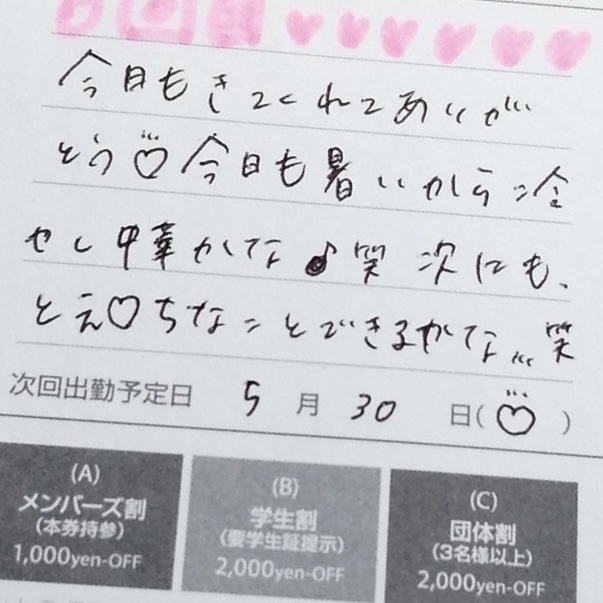 今日もきてくれてありが
とう♡今日も暑いから冷
やし中華かな♪笑 次にも、
とえ♡ちなことできるかな...笑
次回出勤予定日 5月30日(♡)
(A) メンバーズ割 (本券持参) 1,000yen-OFF
(B) 学生割 (要学生証提示) 2,000yen-OFF
(C) 団体割 (3名様以上) 2,000yen-OFF